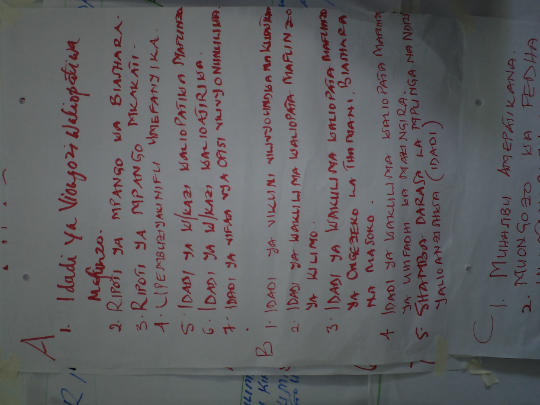 A
1. Idadi ya Viongozi Waliopatiwa
Mafunzo.
2. RIPOTI YA MPANGO WA BIASHARA.
3. RIPOTI YA MPANGO MKAKATI.
4. UPEMBUZI YAKINIFU UMEFANYIKA.
5. IDADI YA W/KAZI WALIOPATIWA MAFUNZO
6. IDADI YA W/KAZI WALIOATHIRIKA.
7. IDADI YA VIFAA VYA OFISI VILIVYONUNULIWA.
B
1. IDADI YA VIKUNDI
2. IDADI YA WAKULIMA WALIOPATA MAFUNZO
YA KILIMO.
3. IDADI YA WAKULIMA WALIOPATA MAFUNZO
YA ONGEZEKO LA THAMANI, BIASHARA
NA MASOKO.
4 IDADI YA WAKULIMA WALIOPATA MAFUNZO
YA UHIFADHI WA MAZINGIRA.
5. SHAMBA DARASA LA MPUNGA NA
YALIOANZISHWA (IDADI)
C
1. MUHASIBU AMEPATIKANA.
2. MUONGOZO WA FEDHA